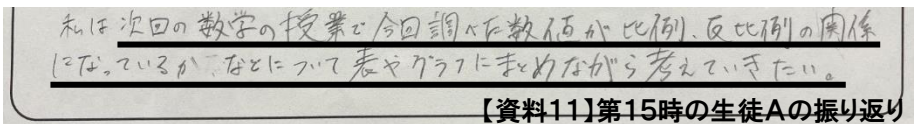 私は次回の数学の授業で今回調べた数値が比例、反比例の関係
になっているか、などについて表やグラフにまとめながら考えていきたい。
【資料11】第15時の生徒Aの振り返り